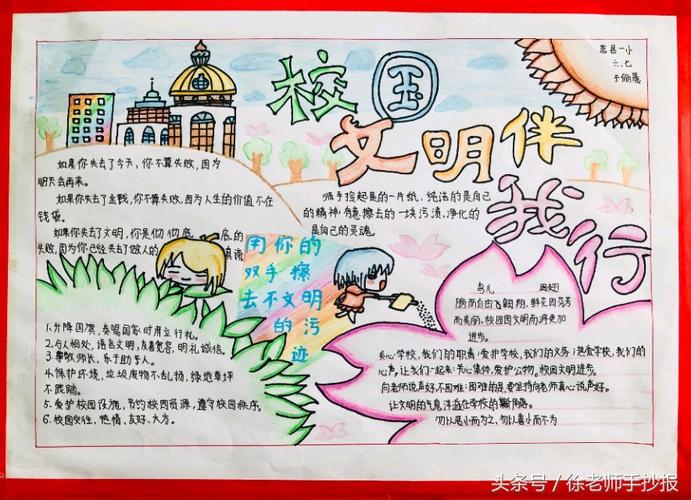 校园
文明伴
我行
莒县一小
六.七
如果你失去了今天,你不算失败,因为
明天会再来。
如果你失去了金钱,你不算失败,因为人生的价值不在
钱袋。
如果你失去了文明,你是彻彻底底的
失败,因为你已经失去了做人的真谛
师手捡起是的一片纸,纯洁的是自己
的精神;有意擦去的一块污渍,净化的
是自己的灵魂。
用你的
双手擦
去不文明
的污
迹
1.升降国旗,奏唱国歌时肃立行礼。
2.与人相处,语言文明,友善宽容,明礼诚信。
3.尊敬师长,乐于助人。
4.保护环境,垃圾废物不乱扔,绿地草坪
不踐踏。
5.爱护校园设施,节约校园资源,遵守校园秩序。
6.校园交往,热情、友好、大方。
鸟儿
因自由飞翔翱翔,鲜花因芳
而美丽,校园因文明而将更加
进步。
关心学校,我们的职责;爱护学校,我们的义务;热爱学校,我们的
心声,让我们一起来:关心集体,爱护公物。校园文明进步。
向老师说声好不困难;困难的是要坚持向老师真心说声好。
让文明的气息洋溢在学校的角落。
勿以恶小而为之,勿以善小而不为
头条号/徐老师手抄报